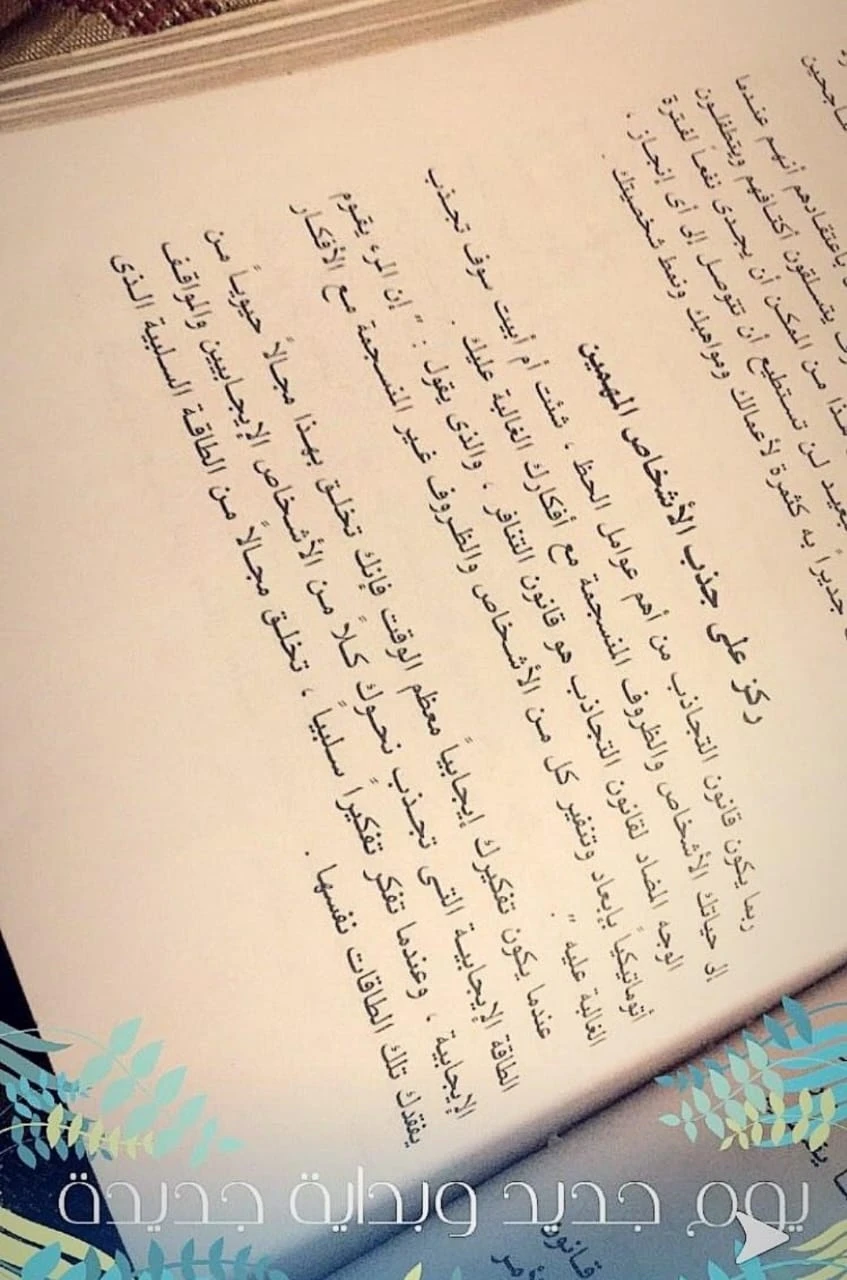 ناجحين
باعتقادهم أنهم عندما
يتسلقون أكتافهم ويتطفلون
من الممكن أن يجدى نفعاً لفترة
لن تستطيع أن تتوصل إلى أى إنجاز ،
جديراً به كثمرة لأعمالك ومواهبك ونمط شخصيتك .
ركز على جذب الأشخاص المهمين
ربما يكون قانون التجاذب من أهم عوامل الحظ ، شئت أم أبيت سوف تجذب
إلى حياتك الأشخاص والظروف المنسجمة مع أفكارك الغالبة عليك .
الوجه المضاد لقانون التجاذب هو قانون التنافر ، والذى يقول : " إن المرء يقوم
أتوماتيكياً بإبعاد وتنفير كل من الأشخاص والظروف غير المنسجمة مع الأفكار
الغالبة عليه " .
عندما يكون تفكيرك إيجابياً معظم الوقت فإنك تخلق بهذا مجالاً حيوياً من
الطاقة الإيجابية التى تجذب نحوك كلاً من الأشخاص الإيجابيين والمواقف
الإيجابية ، وعندما تفكر تفكيراً سلبياً ، تخلق مجالاً من الطاقة السلبية الذى
يفقدك تلك الطاقات نفسها .
يوم جديد وبداية جديدة
قانون